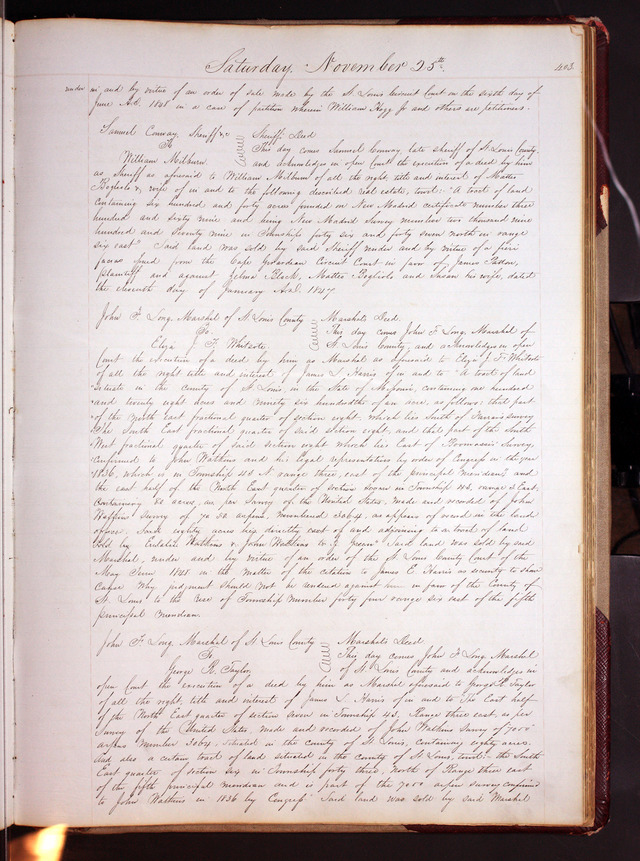 Saturday, November 25th. 403
under in, and by virtue of an order of sale made by the St Louis Circuit Court on the sixth day of
June A.D. 1848 in a case of partition wherein William Hogg Jr and others are petitioners.
Samuel Conway, Sheriff &c Sheriffs Deed
To This day comes Samuel Conway, late sheriff of St Louis County
William Milburn and acknowledges in open Court the execution of a deed by him
as Sheriff as aforesaid to William Milburn of all the right, title and interest of Matteo
Bogliolo & wife of in and to the following described real estate, towit: "A tract of land
containing six hundred and forty acres, founded on New Madrid certificate number three
hundred and sixty nine and being New Madrid survey number two thousand nine
hundred and seventy nine in Township forty six and forty seven north in range
six east." Said land was sold by said Sheriff under and by virtue of a fieri
facias issued from the Cape Girardeau Circuit Court in favor of James
plaintiff and against Black, Matteo Bogliolo and Susan his wife, dated
the eleventh day of January A.D. 1847
John F. Long, Marshal of St Louis County Marshals Deed.
To This day comes John F. Long, Marshal of
Eliza J. F. Whitcote St Louis County, and acknowledges in open
Court the execution of a deed by him as Marshal as aforesaid to Eliza J. F. Whitcote
of all the right title and interest of James L. Harris of in and to "A tract of land
situate in the County of St Louis in the State of Missouri, containing one hundred
and twenty eight acres and ninety six hundredths of an acre, as follows: that part
of the North East fractional quarter of section eight, which lies South of survey
The South East fractional quarter of said section eight, and that part of the South
West fractional quarter of said section eight which lies East of Survey,
confirmed to John Watkins and his legal representatives by order of Congress in the year
1836, which is in Township 43 N range three, east of the principal meridian; and
the east half of the North East quarter of section seven in Township 43, range 3 East,
containing 80 acres, as per Survey of the United States, made and recorded of John
Watkins survey of 7000 arpens, numbered 3064 as appears of record in the land
office. Said eighty acres lies directly east of and adjoining to a tract of land
sold by Eulalie Watkins & John Watkins to Green" Said land was sold by said
Marshal, under and by virtue of an order of the St Louis County Court of the
May Term 1848 in the matter of the citation to James E. Harris as security to show
cause why judgment should not be rendered against him in favor of the County of
St. Louis to the use of Township number forty four range six east of the fifth
principal meridian.
John F. Long, Marshal of St Louis County Marshals Deed
To This day comes John F. Long, Marshal
George R. Taylor of St Louis County and acknowledges in
open Court the execution of a deed by him as Marshal aforesaid to George R. Taylor
of all the right, title and interest of James L. Harris of in and to "The East half
of the North East quarter of section seven in Township 43, Range three east, as per
Survey of the United States, made and recorded of John Watkins Survey of 7000
arpens number 3064, situated in the county of St Louis, containing eighty acres.
And also a certain tract of land situated in the county of St Louis, towit: the South
East quarter of section six in Township forty three, North of Range three east
of the fifth principal meridian and is part of the 7000 arpen survey confirmed
to John Watkins in 1836 by Congress" Said land was sold by said Marshal